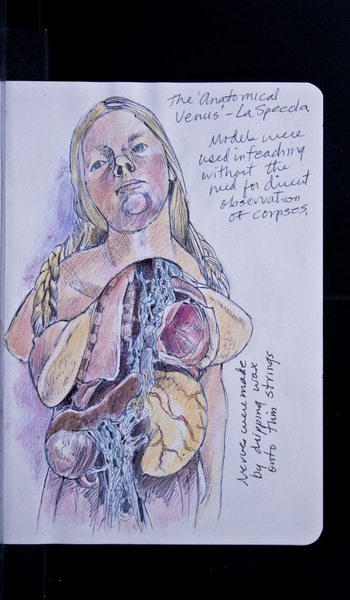 The 'Anatomical
Venus' - La Specola
Models were
used in teaching
without the
need for direct
observation
of corpses.
Nerves were make
by dripping wax
onto thin strings